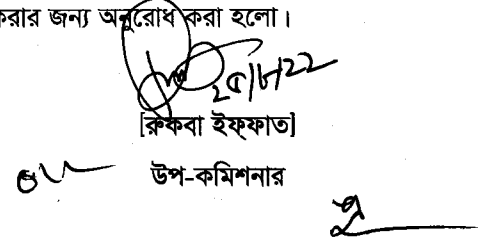 করার জন্য অনুরোধ করা হলো।
[রুকবা ইফ্ফাত]
উপ-কমিশনার